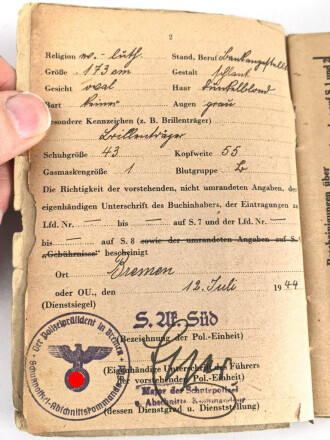 2
Religion ev.-luth. Stand, Beruf Bankangestellter
Größe 173 cm Gestalt schlank
Gesicht oval Haar dunkelblond
Bart keiner Augen grau
Besondere Kennzeichen (z. B. Brillenträger)
Brillenträger
Schuhgröße 43 Kopfweite 55
Gasmaskengröße 1 Blutgruppe B
Die Richtigkeit der vorstehenden, nicht umrandeten Angaben, der
eigenhändigen Unterschrift des Buchinhabers, der Eintragungen zu
Lfd. Nr. — bis — auf S. 7 und der Lfd. Nr. —
bis — auf S. 8 sowie der umrandeten Angaben auf S.
„Gebührnisse“ bescheinigt
Ort Bremen
oder OU., den 12. Juli 1944
(Dienstsiegel)
S. Ak. Süd
(Bezeichnung der Pol.-Einheit)
(Eigenhändige Unterschrift des Führers
der vorstehenden Pol.-Einheit)
Major der Schutzpolizei
u. Abschnitts-Kommandeur
(dessen Dienstgrad u. Dienststellung)
Der Polizeipräsident in Bremen